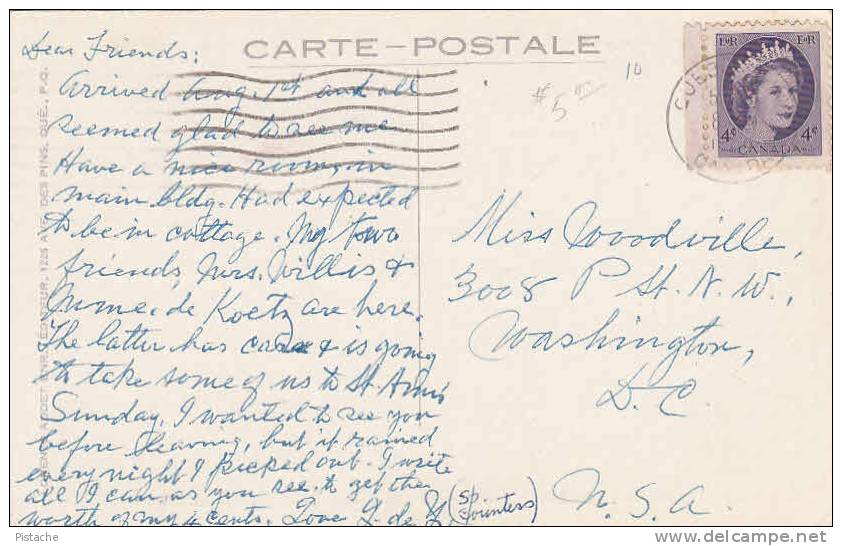 CARTE-POSTALE
Dear Friends:
Arrived Aug. 1st and all
seemed glad to see me
Have a nice room in
main bldg. Had expected
to be in cottage. My two
friends, Mrs. Willis &
Mme. de Koetz are here.
The latter has car & is going
to take some of us to St. Ann's
Sunday. I wanted to see you
before leaving, but it rained
every night I picked out. I write
all I can as you see to get the
worth of my 4 cents. Love
(Sp Counters)
E II R E II R
4¢ 4¢
CANADA
10
Miss Woodville,
3008 P St. N.W.,
Washington,
D.C.
U.S.A.
1226 AVE. DES PINS, QUÉ., P.Q.
Pistache
www.delcampe.net